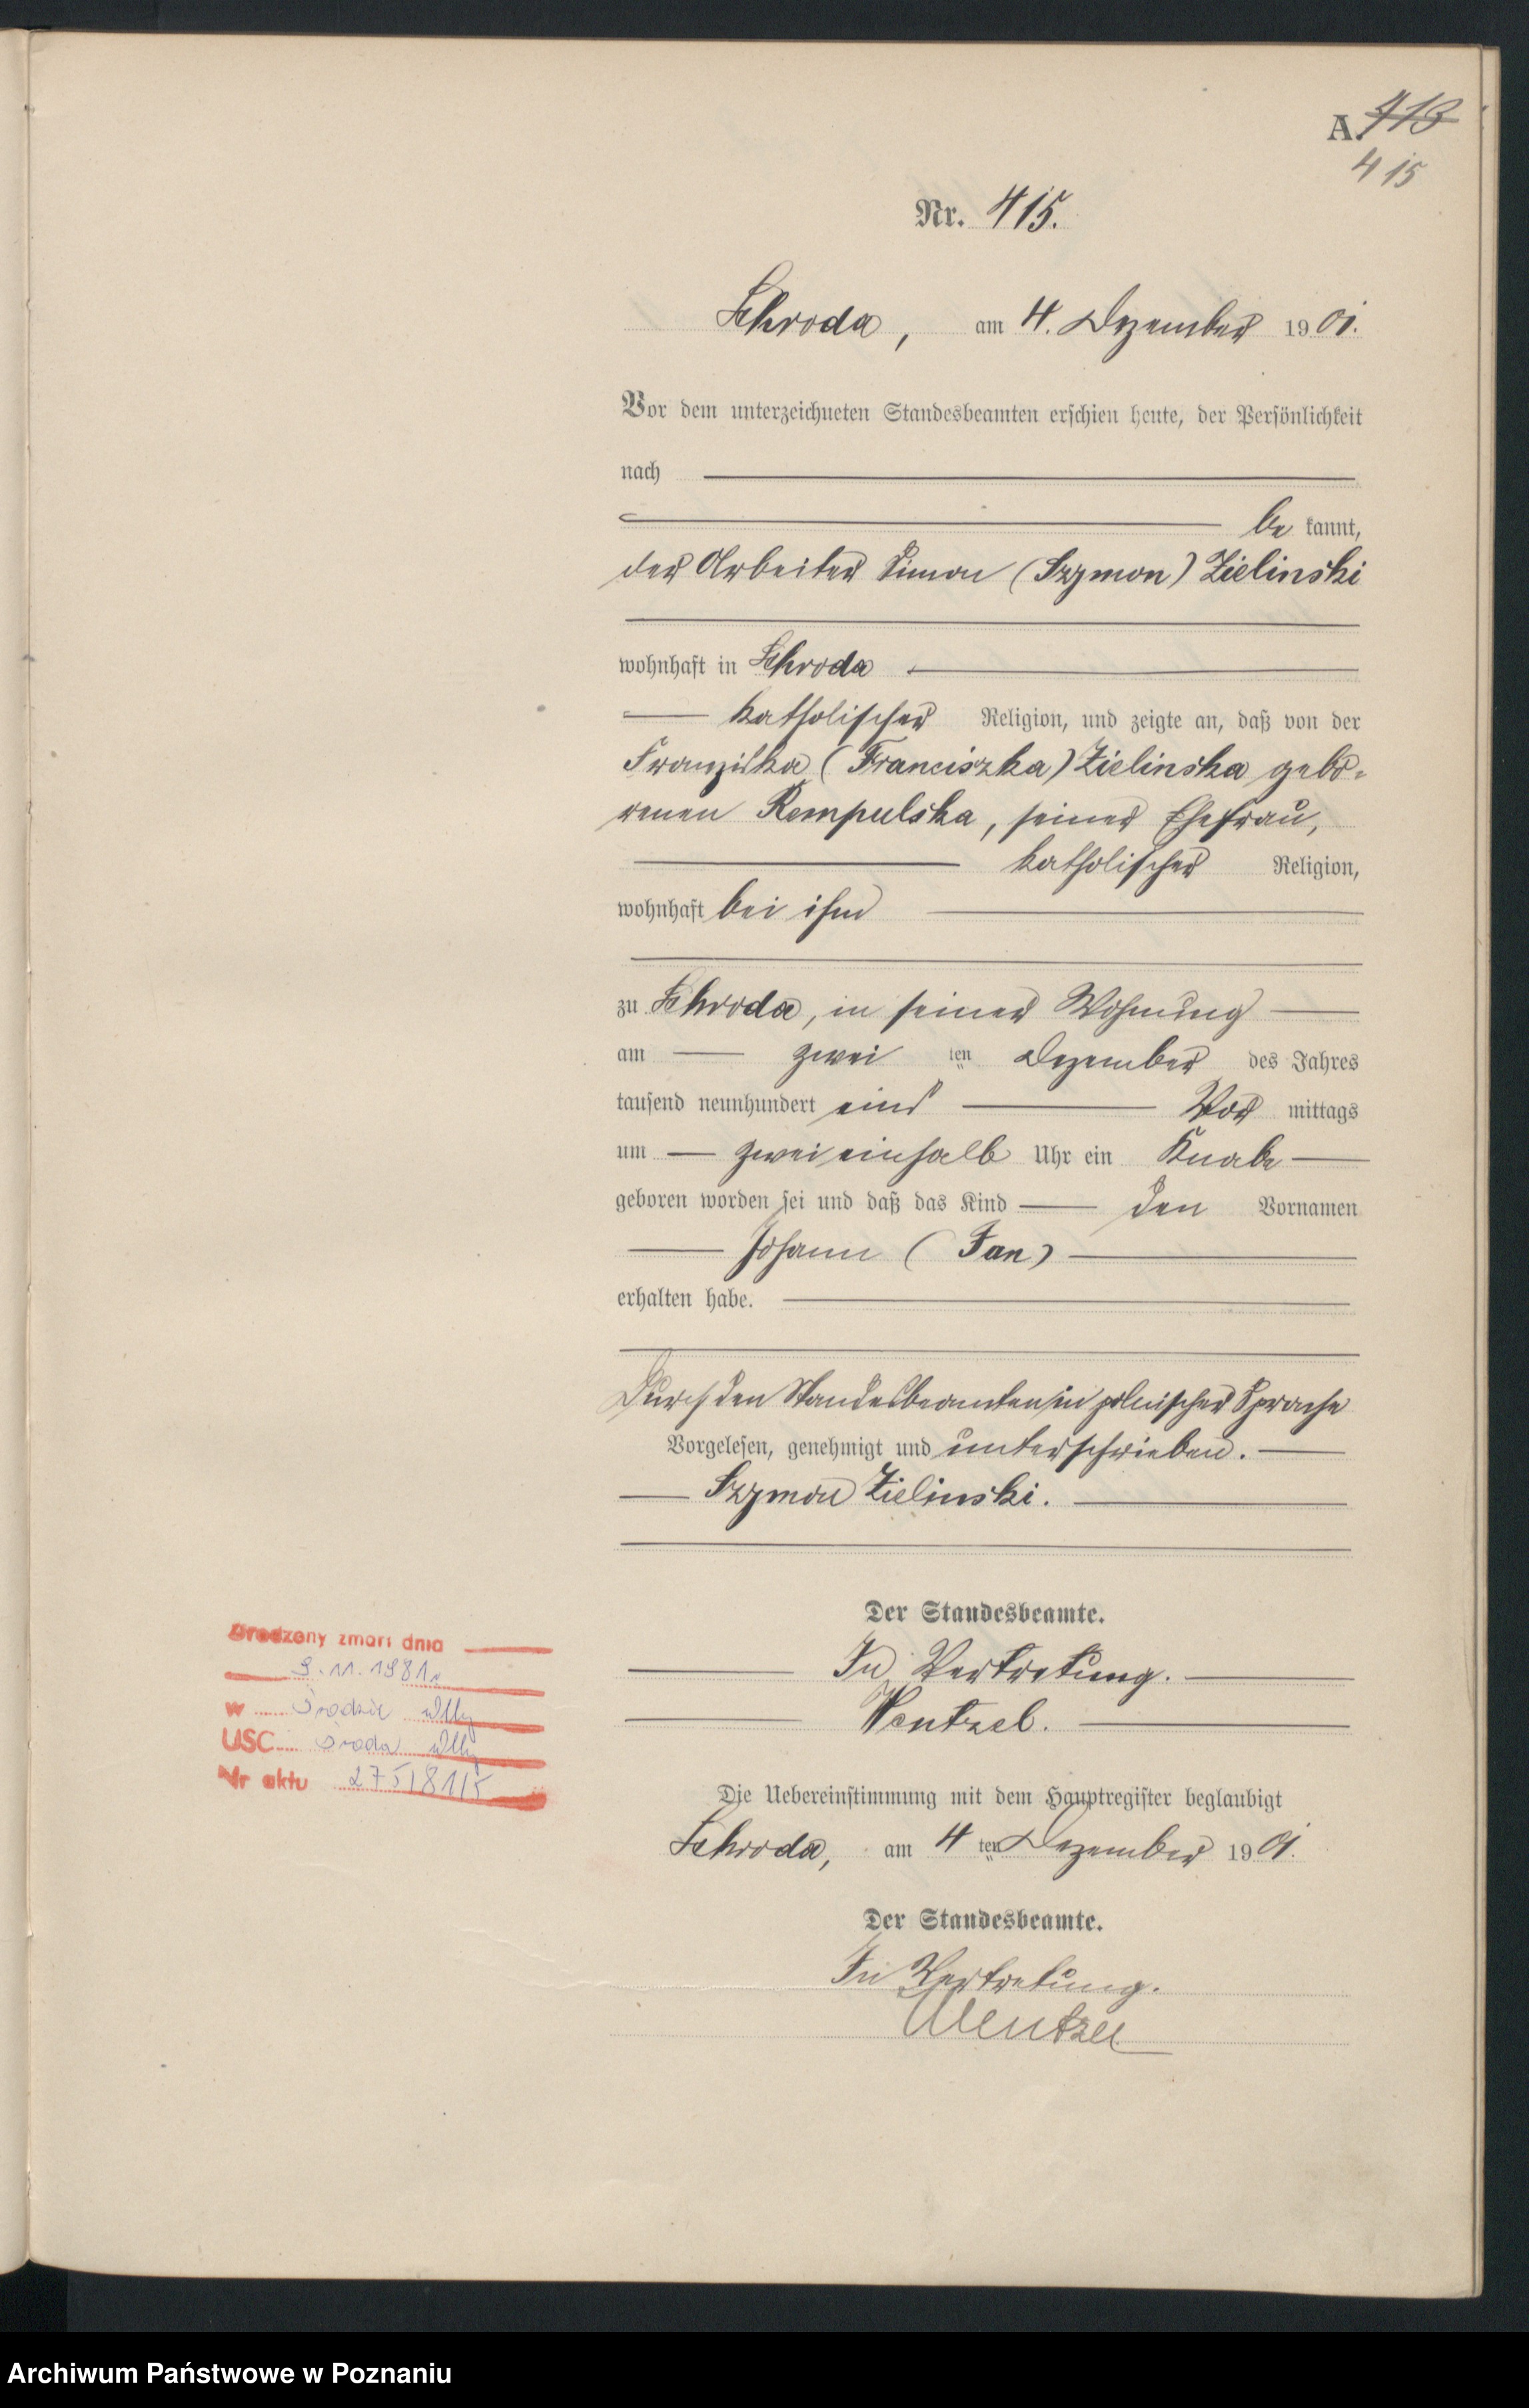 A. 413
415
Nr. 415.
Schroda, am 4. Dezember 1901.
Vor dem unterzeichneten Standesbeamten erschien heute, der Persönlichkeit
nach
be kannt,
der Arbeiter Simon (Szymon) Zielinski
wohnhaft in Schroda
katholischer Religion, und zeigte an, daß von der
Franziska (Franciszka) Zielinska gebo-
renen Rempulska, seiner Ehefrau,
katholischer Religion,
wohnhaft bei ihm
zu Schroda, in seiner Wohnung
am zwei ten Dezember des Jahres
tausend neunhundert eins Vor mittags
um zwei einhalb Uhr ein Knabe
geboren worden sei und daß das Kind den Vornamen
Johann (Jan)
erhalten habe.
Durch den Standesbeamten in polnischer Sprache
Vorgelesen, genehmigt und unterschrieben.
Szymon Zielinski.
Der Standesbeamte.
In Vertretung.
Wentzel.
Urodzony zmarł dnia
9.11.1981r
w Środzie Wlkp
USC Środa Wlkp
Nr aktu
Die Uebereinstimmung mit dem Hauptregister beglaubigt
Schroda, am 4 ten Dezember 1901.
Der Standesbeamte.
In Vertretung.
Wentzel
Archiwum Państwowe w Poznaniu